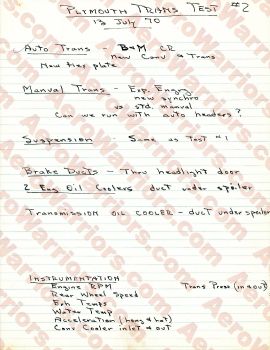 PLYMOUTH TRANS TEST #2
13 JULY 70
Auto Trans - B&M CR
New Conv & Trans
New flex plate
Manual Trans - Exp. Engg
new synchro
vs std. manual
Can we run with auto headers?
Suspension - Same as Test #1
Brake Ducts - Thru headlight door
2 Eng Oil Coolers duct under spoiler
Transmission OIL COOLER - duct under spoiler
INSTRUMENTATION
Engine RPM Trans Press (in & out)
Rear Wheel Speed
Exh Temps
Water Temp
Acceleration (long & lat)
Conv Cooler inlet & out